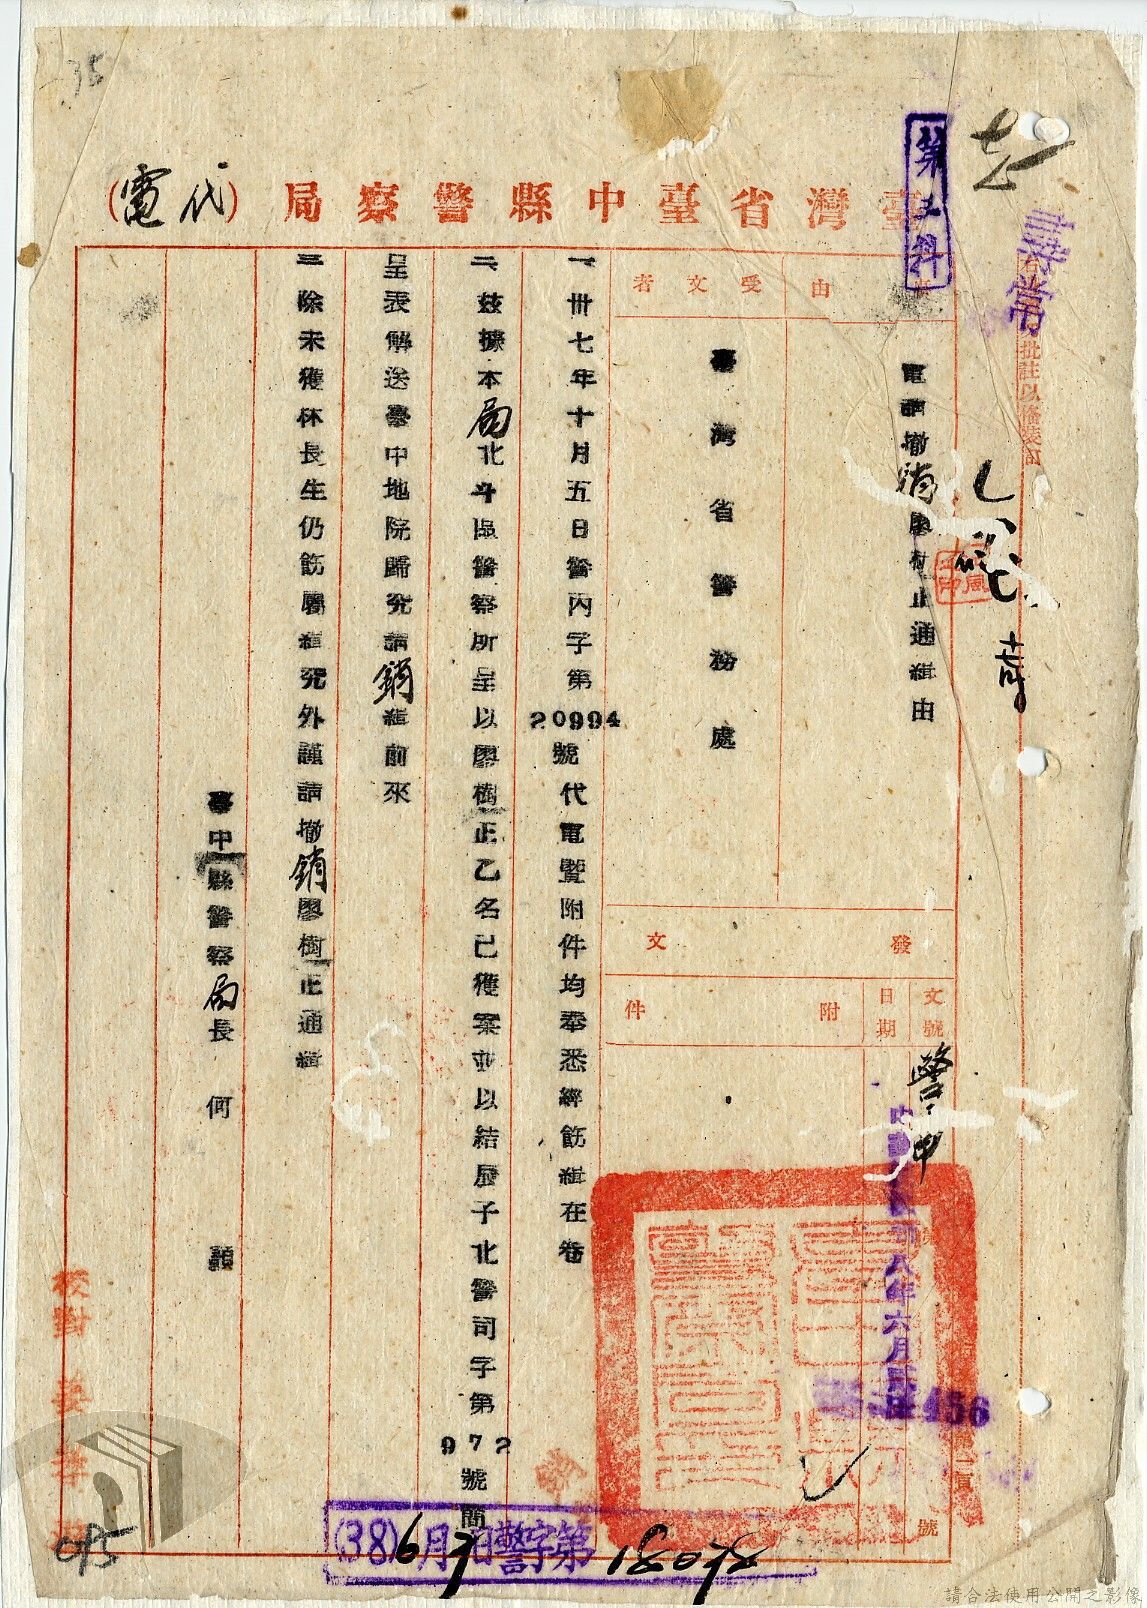 35
臺灣省臺中縣警察局(代電)
第五科
事由
電請撤銷廖樹正通緝由
受文者
臺灣省警務處
發文
附件
日期
文號
一、卅七年十月五日警丙字第20994號代電暨附件均奉悉經飭緝在卷
二、茲據本局北斗區警察所呈以廖樹正乙名已獲案並以結辰子北警司字第972號簡
呈表解送臺中地院歸究請銷緝前來
三、除未獲林長生仍飭屬緝究外謹請撤銷廖樹正通緝
臺中縣警察局長 何 顯
校對
(38)6月 日警字第 號
請合法使用公開之影像